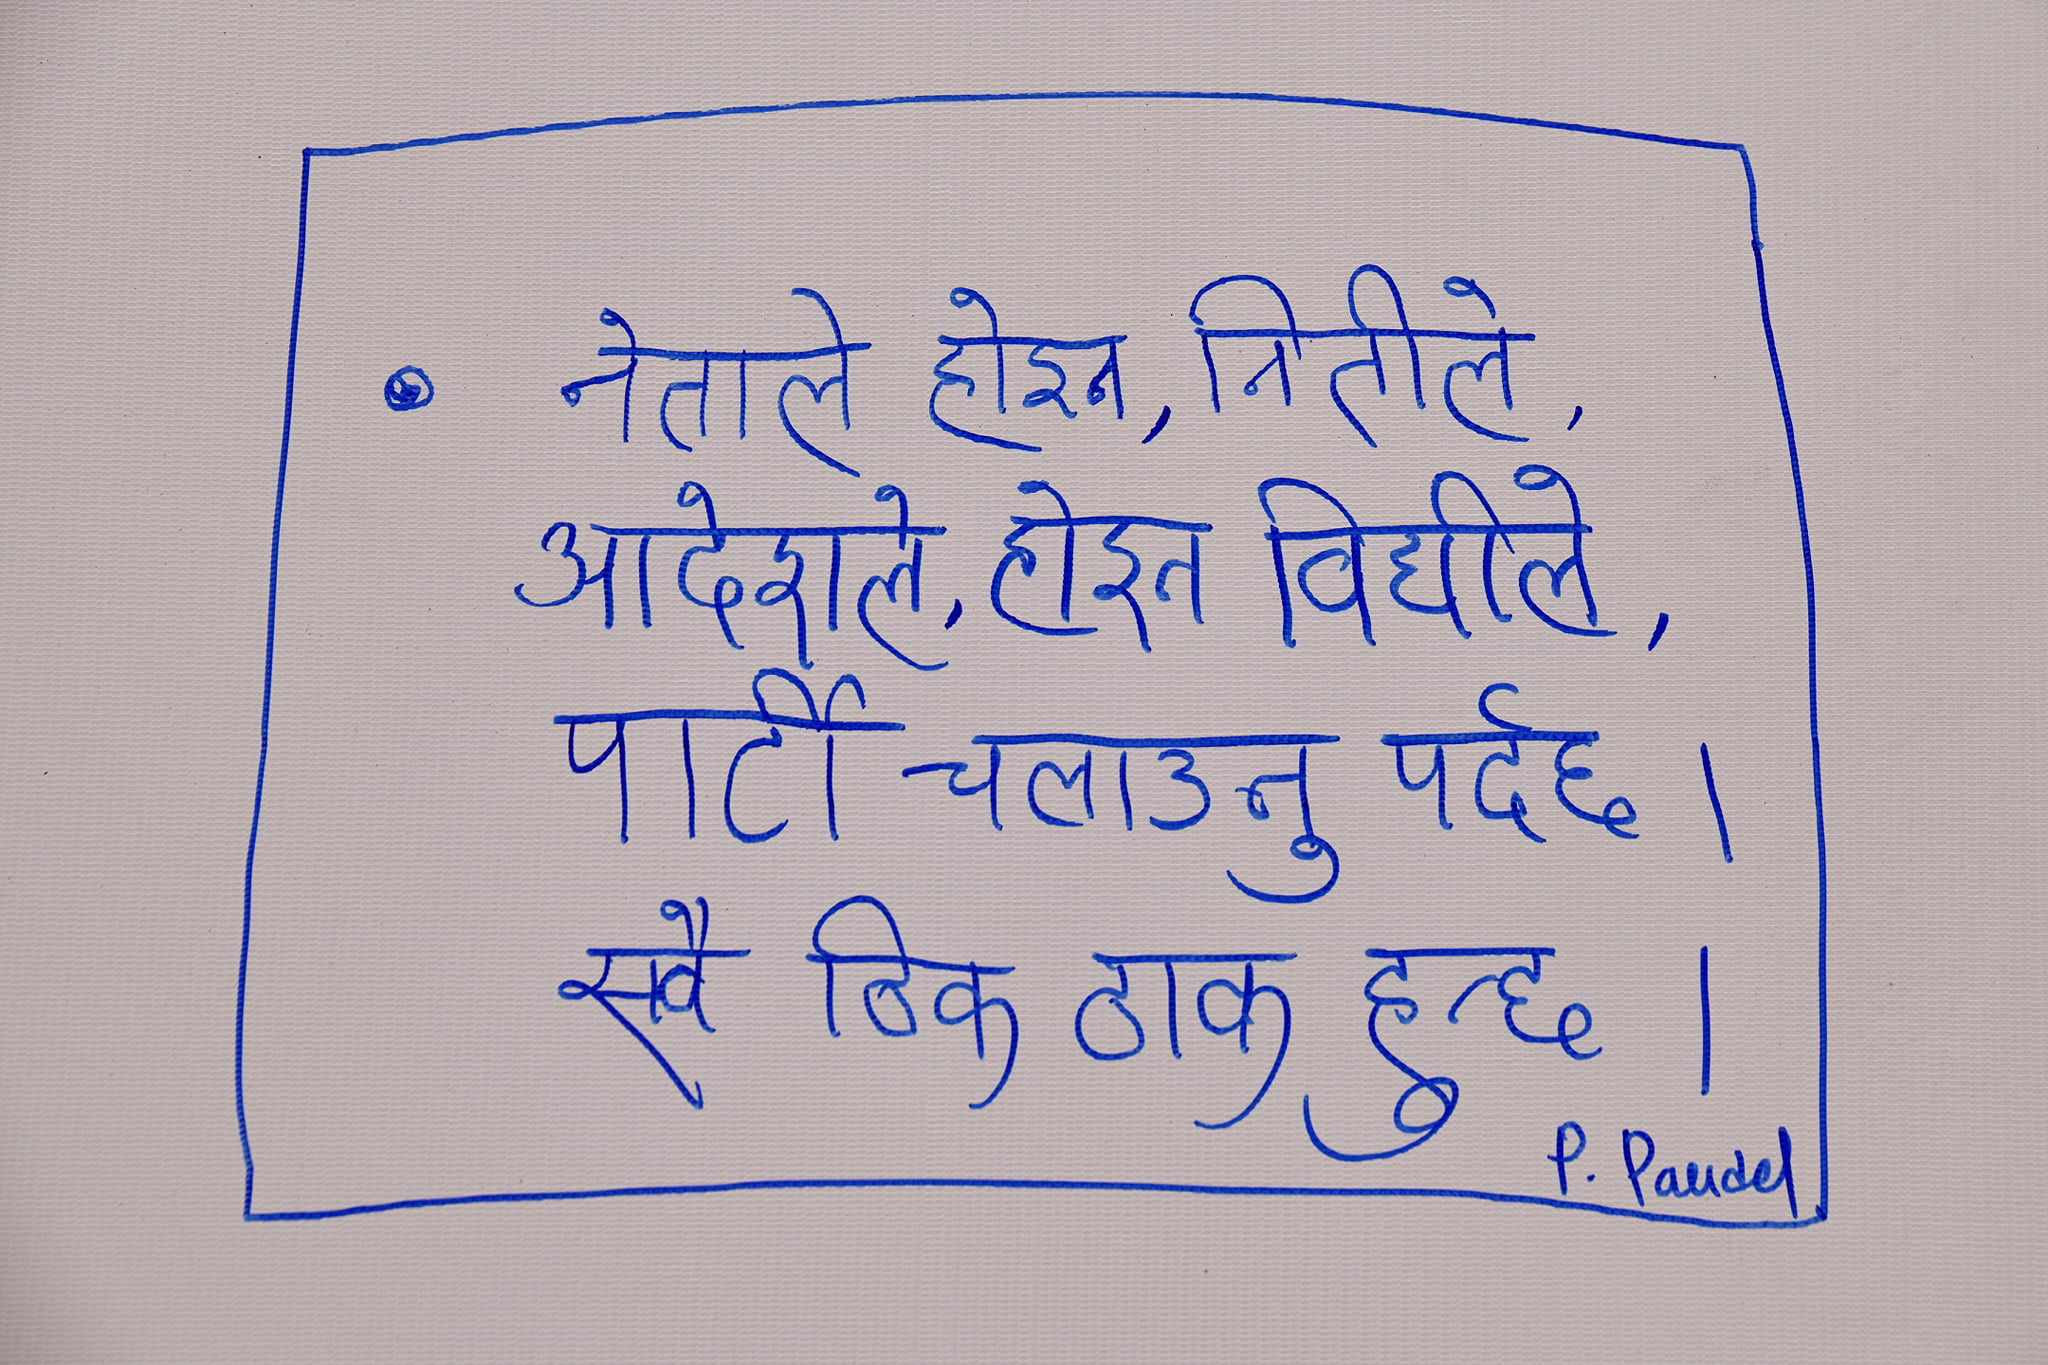 • नेताले होइन, नितीले,
आदेशले, होइन विधीले,
पार्टी चलाउनु पर्दछ ।
सवै ठिक ठाक हुन्छ ।
P. Paudel